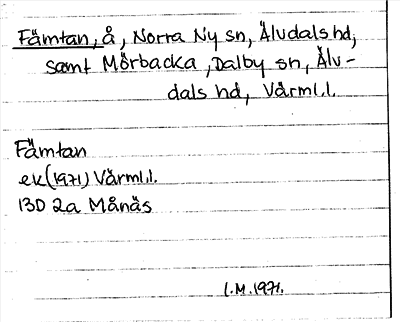 Fämtan, å, Norra Ny sn, Älvdals hd,
samt Mörbacka, Dalby sn, Älv-
dals hd, Värml.l.
Fämtan
ek(1971) Värml.l.
13D 2a Månäs
I.M.1971.